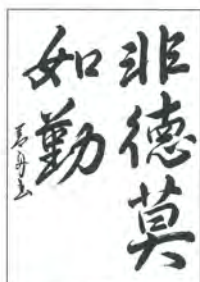 非德莫
如勤